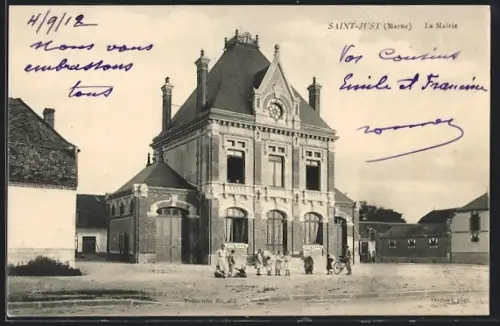 4/9/12
Nous vous
embrassons
tous
SAINT-JUST (Marne) La Mairie
Vos Cousins
Emile et Francine
phot.